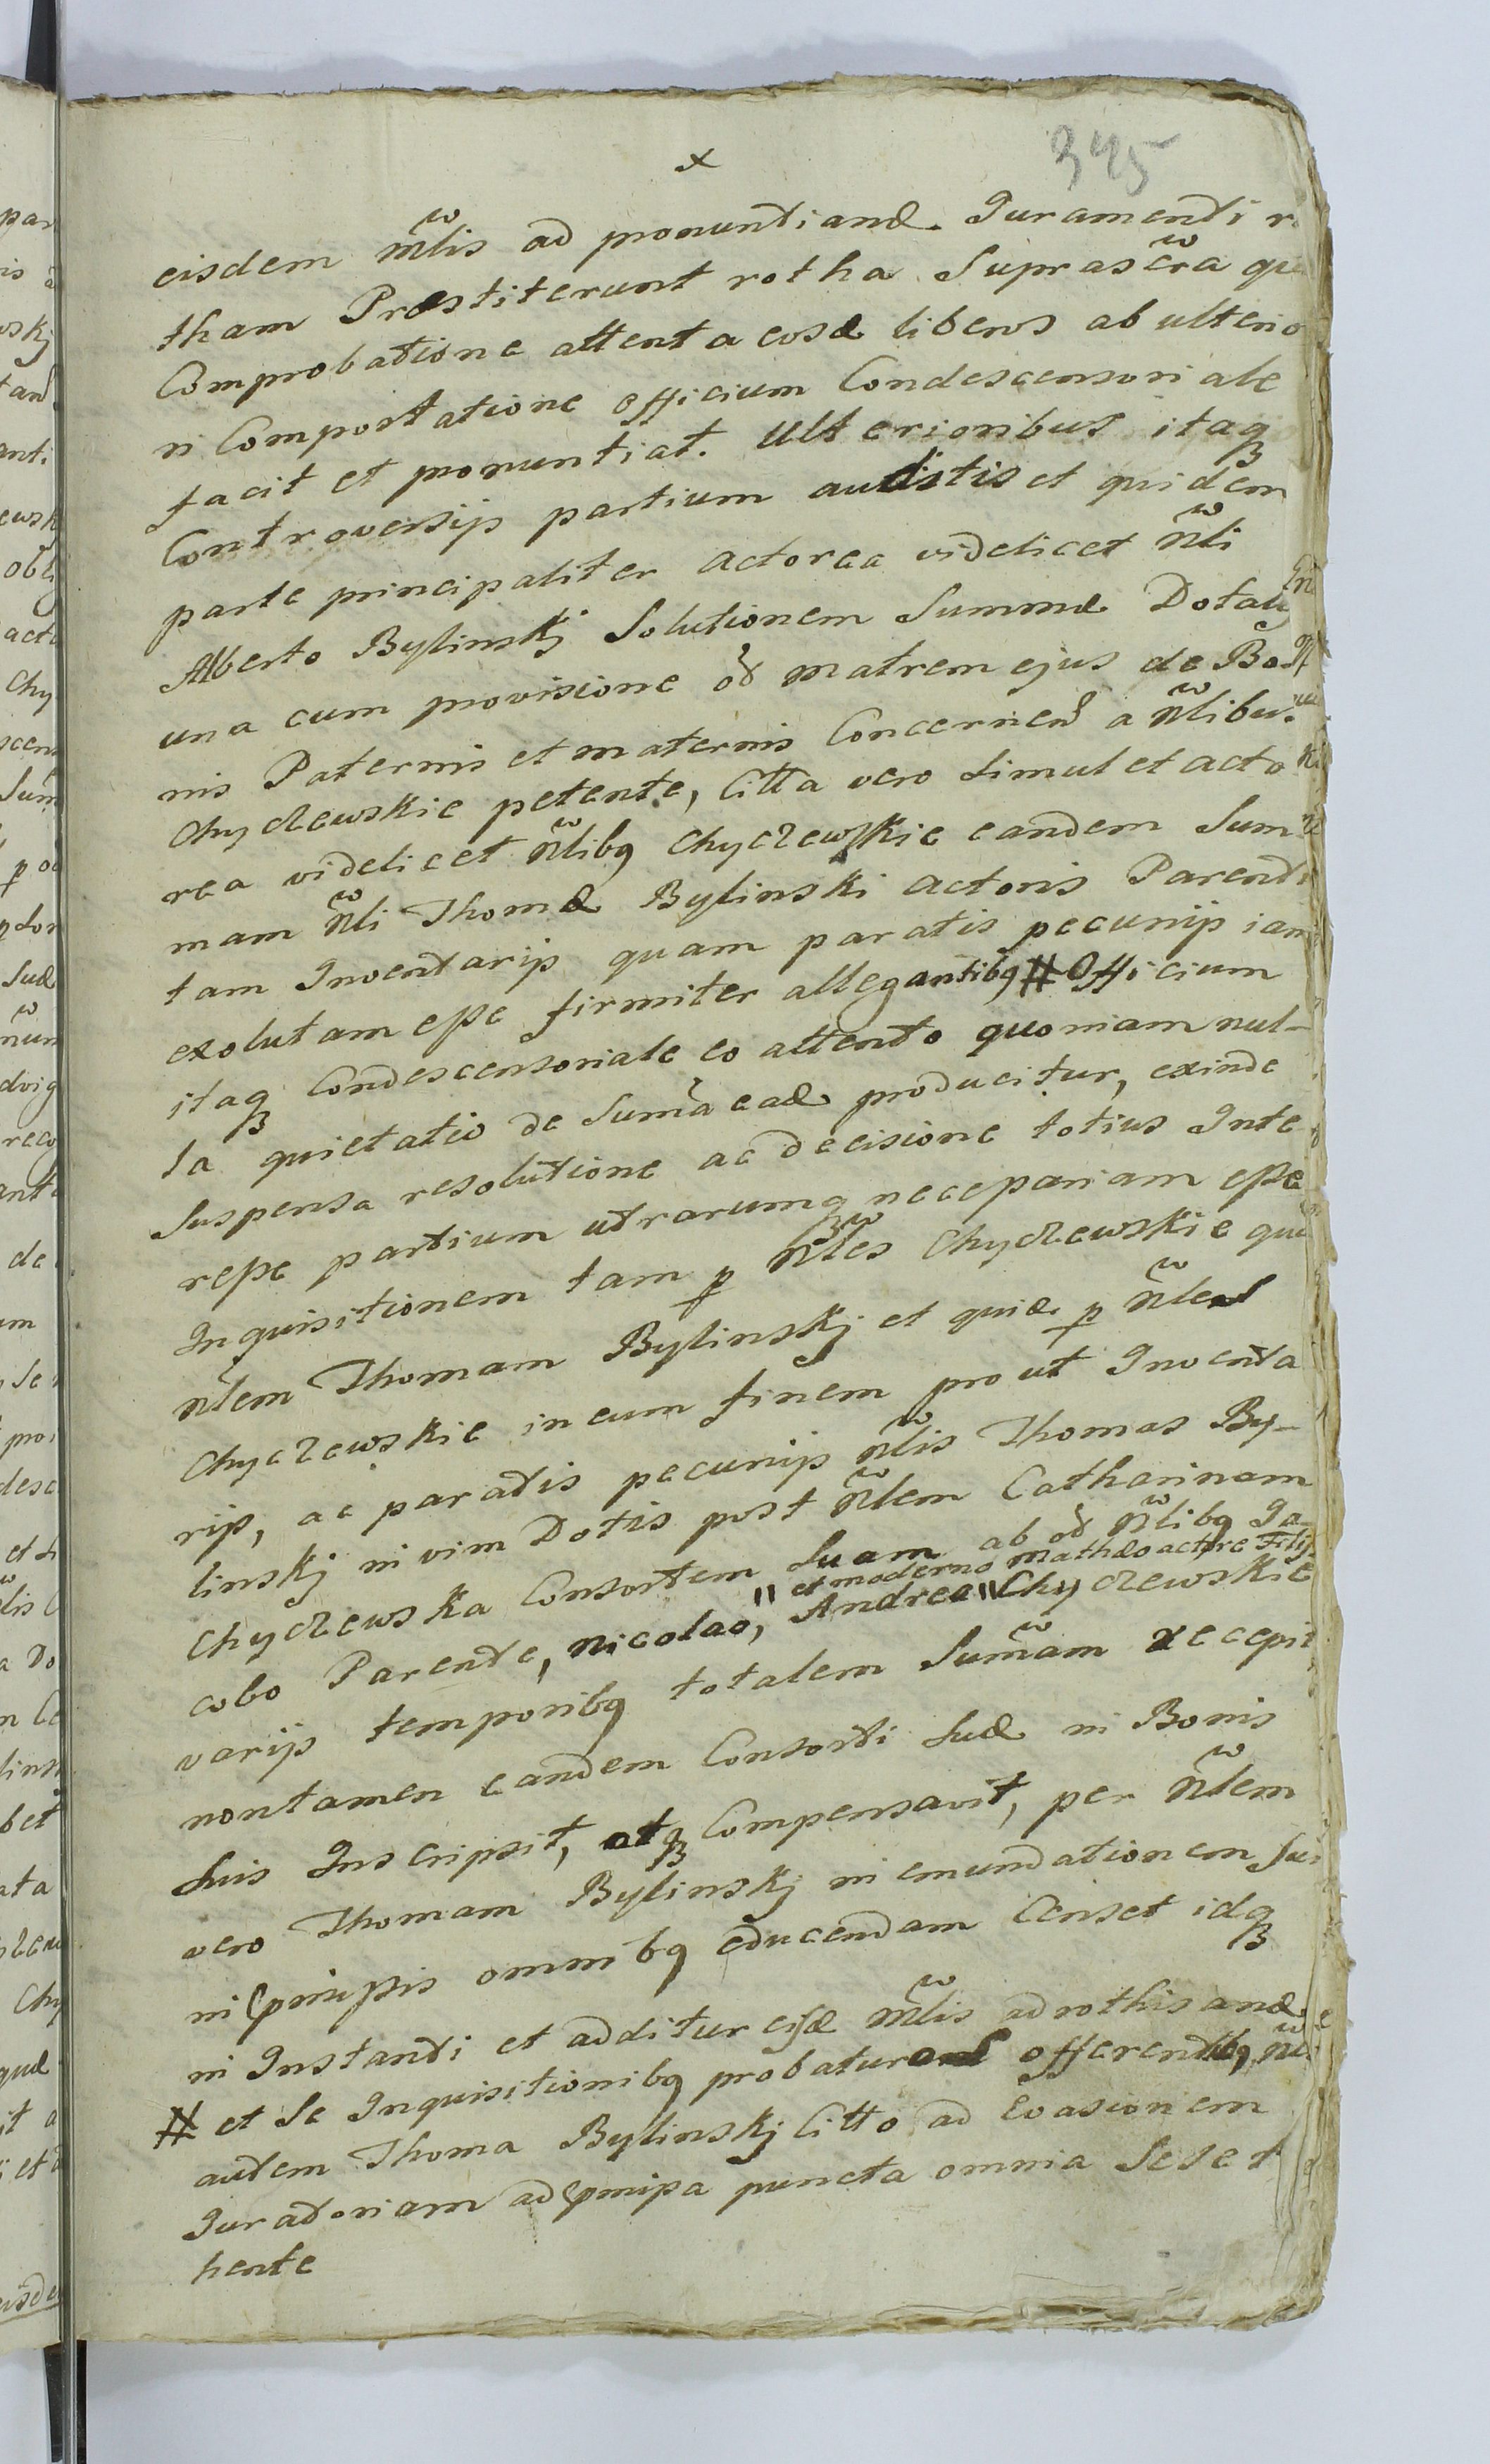 x
395
eisdem Mlis ad pronuntiand. Juramenti ro
tham Præstiterunt rotha Suprascra qua
Comprobatione attenta eosd liberos ab ulterio
ri Comportatione officium Condescensoriale
facit et pronuntiat. Ulterioribus itaq
Controversijs partium auditis et quidem
parte principaliter actorea videlicet Nli
Alberto Bylinskj Solutionem Summæ Dotalis
una cum provisione od matrem ejus de Bo
nis Paternis et maternis Concernen a Nlibus
Chyczewskie petente, Citta vero simul et acto
rea videlicet Nlibq Chyczewskie eandem Sum
mam Nli Thomæ Bylinski actoris Parenti
tam Inventarijs quam paratis pecunijs iam
exolutam esse firmiter allegantibq # Officium
itaq Condescensoriale eo attento quoniam nul-
la quietatio de Suma ead producitur, exinde
Suspensa resolutione ac decisione totius Inte
resse partium utrarumq necessariam esse
Inquisitionem tam p Nles Chyczewskie qua
Nlem Thomam Bylinskj et quid. p Nles
Chyczewskie in eum finem prout Inventa
rijs, ac paratis pecunijs Nlis Thomas By-
linskj in vim Dotis post Nlem Catharinam
Chyczewska Consortem Suam ab od Nlibq Ja-
cobo Parente, Nicolao, Andrea " et moderno Mathæo actore Filijs " Chyczewskie
varijs temporibq totalem Sumam recepit
nontamen eandem Consorti suæ in Bonis
suis Inscripsit, atq Compensavit, per Nlem
vero Thomam Bylinskj in emundationem sui
in pmissis omnibq educendam Censet idq
in Instanti et additur eisd Mlis ad rothisand.
# et se Inquisitionibq probaturos offerentibq Nli
autem Thoma Bylinskj Citto ad evasionem
Juratoriam ad pmissa puncta omnia Seset
hente